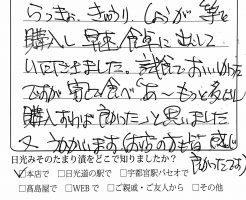 らっきょ、きゅうり、しょうが 等を
購入し 早速 食卓に 出して
いただきました。試食でおいしかった
ですが 家で食べ あ〜もっと多めに
購入すれば 良かった。と思いました
又 うかがいます(お店の方も皆 感じ
良かったです)
日光みそのたまり漬をどこで知りましたか?
☑本店で □日光道の駅で □宇都宮駅パセオで
□髙島屋で □WEBで □ご親戚・ご友人から □その他